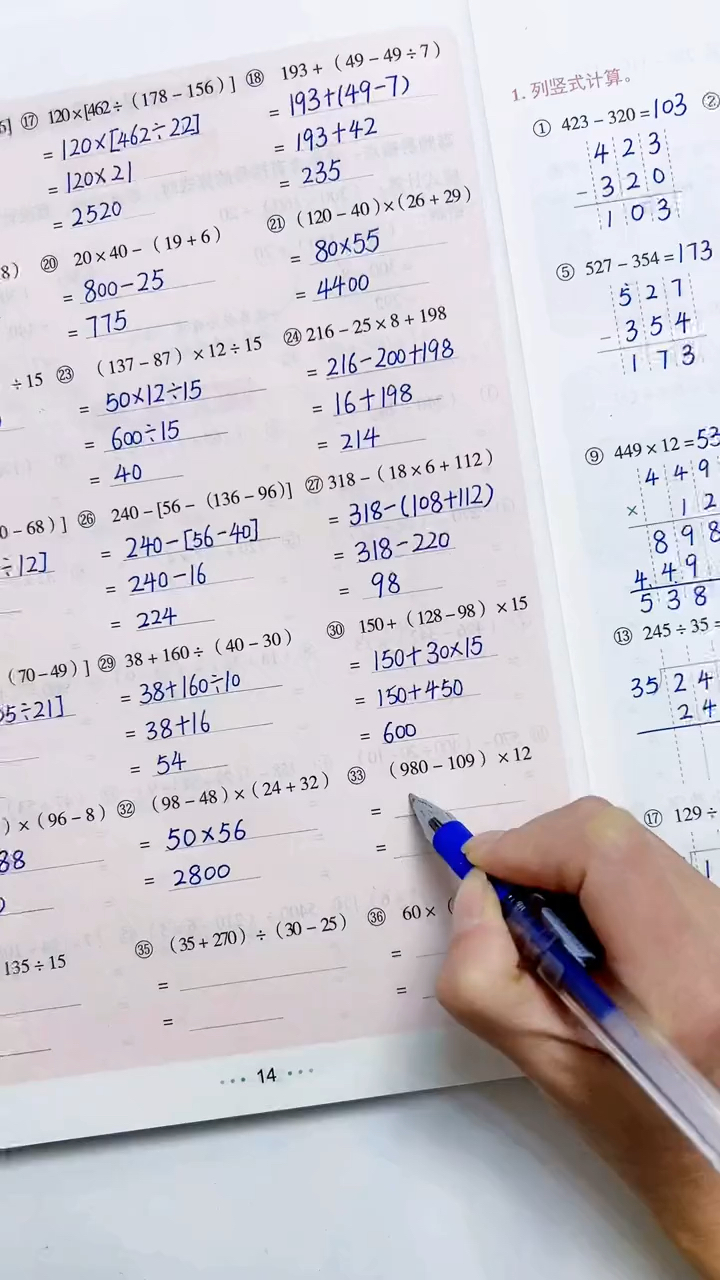 6] ⑰ 120×[462÷（178－156）] ⑱ 193＋（49－49÷7）
=120×[462÷22] =193+(49-7)
=120×21 =193+42
=2520 =235
8） ⑳ 20×40－（19＋6） ㉑ （120－40）×（26＋29）
=800-25 =80×55
=775 =4400
÷15 ㉓ （137－87）×12÷15 ㉔ 216－25×8＋198
=50×12÷15 =216-200+198
=600÷15 =16+198
=40 =214
0－68）] ㉖ 240－[56－（136－96）] ㉗ 318－（18×6＋112）
÷12] =240-[56-40] =318-(108+112)
=240-16 =318-220
=224 =98
（70－49）] ㉙ 38＋160÷（40－30） ㉚ 150＋（128－98）×15
5÷21] =38+160÷10 =150+30×15
=38+16 =150+450
=54 =600
）×（96－8） ㉜ （98－48）×（24＋32） ㉝ （980－109）×12
88 =50×56 =
=2800 =
135÷15 ㉟ （35＋270）÷（30－25） ㊱ 60×（
= =
= =
14
1. 列竖式计算。
① 423－320=103 ②
423
－320
103
⑤ 527－354=173
527
－354
173
⑨ 449×12=53
449
× 12
898
449
538
⑬ 245÷35=
35 24
24
⑰ 129÷
1